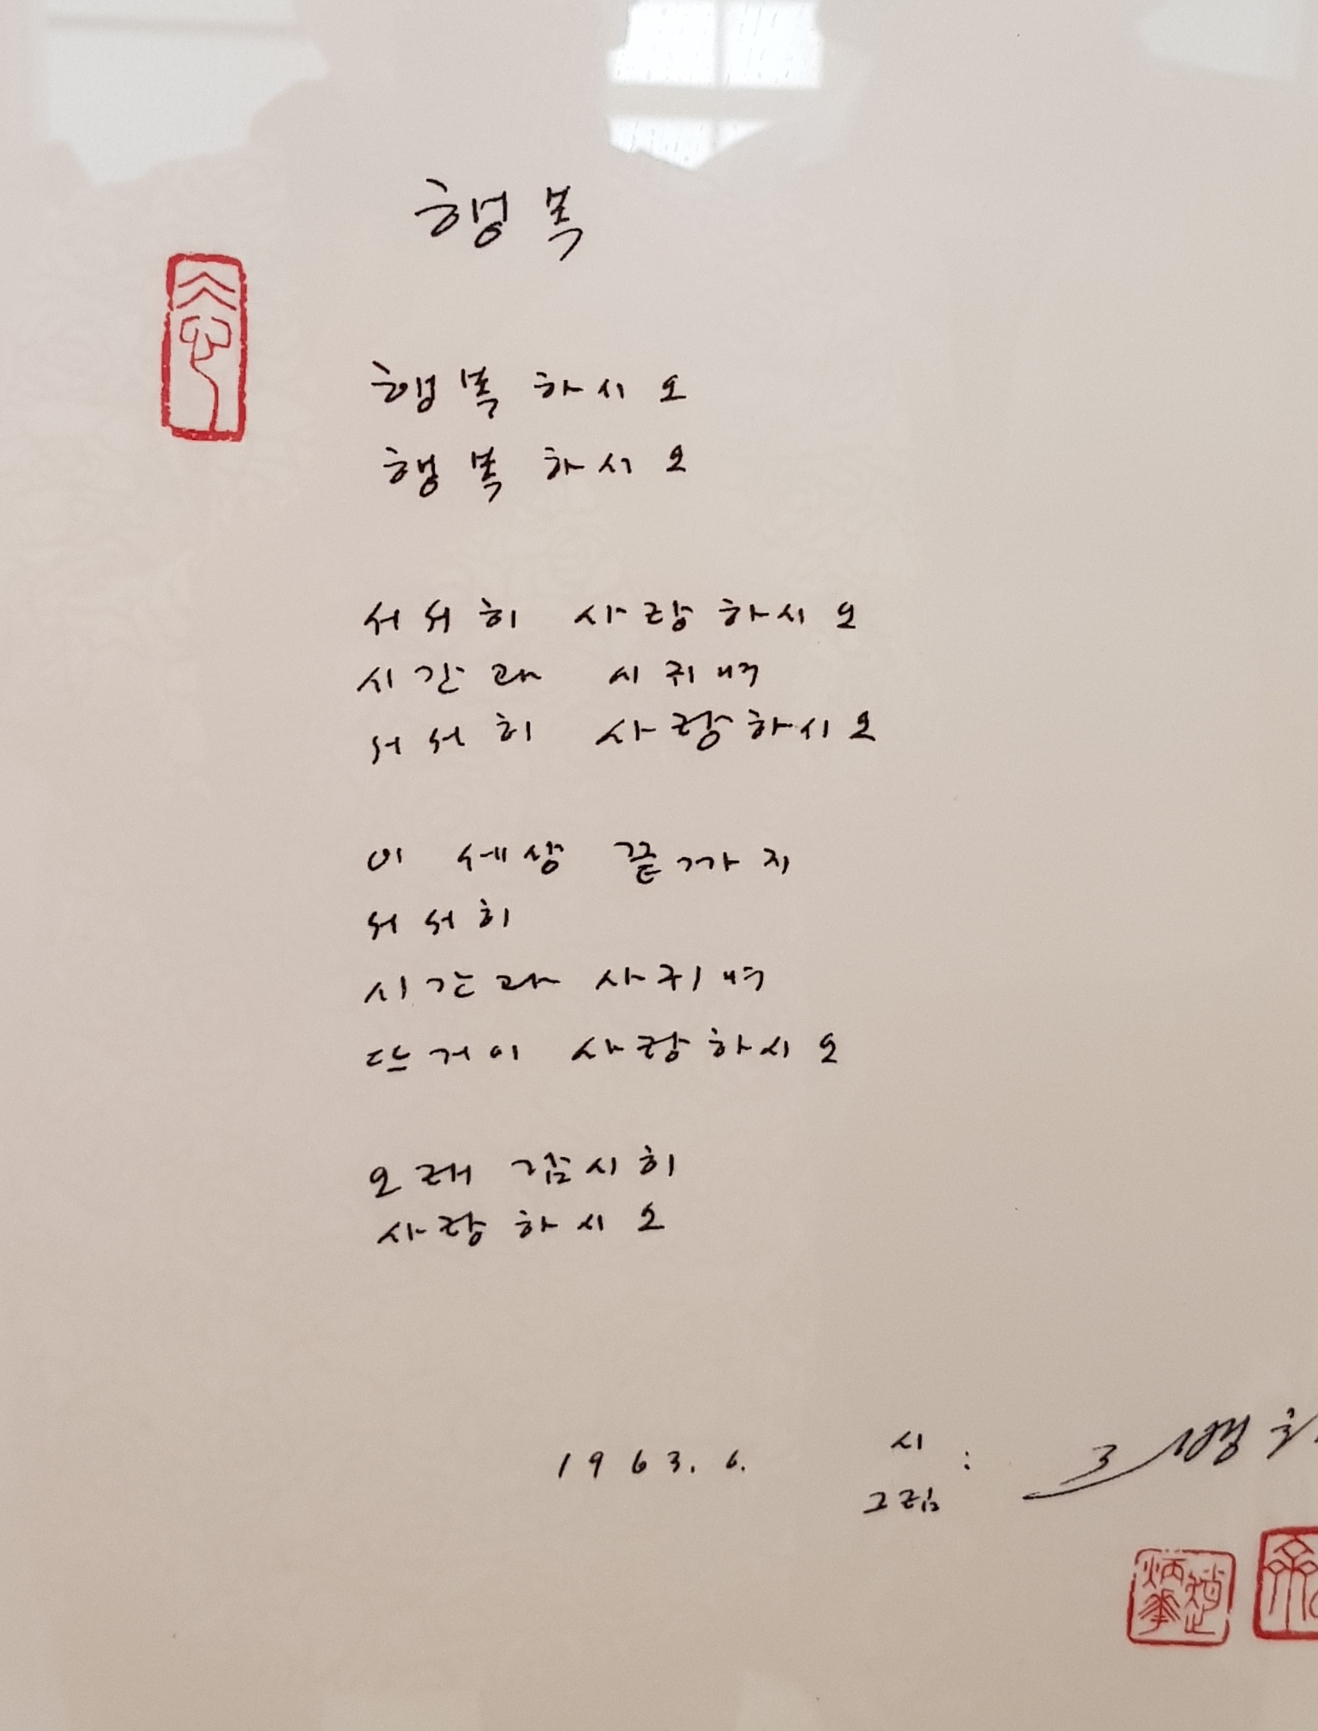 행복
행복하시오
행복하시오
서서히 사랑하시오
시간과 사귀며
서서히 사랑하시오
이 세상 끝까지
서서히
시간과 사귀며
뜨거이 사랑하시오
오래
사랑하시오
1963. 6.
시 :
그림
趙
炳華